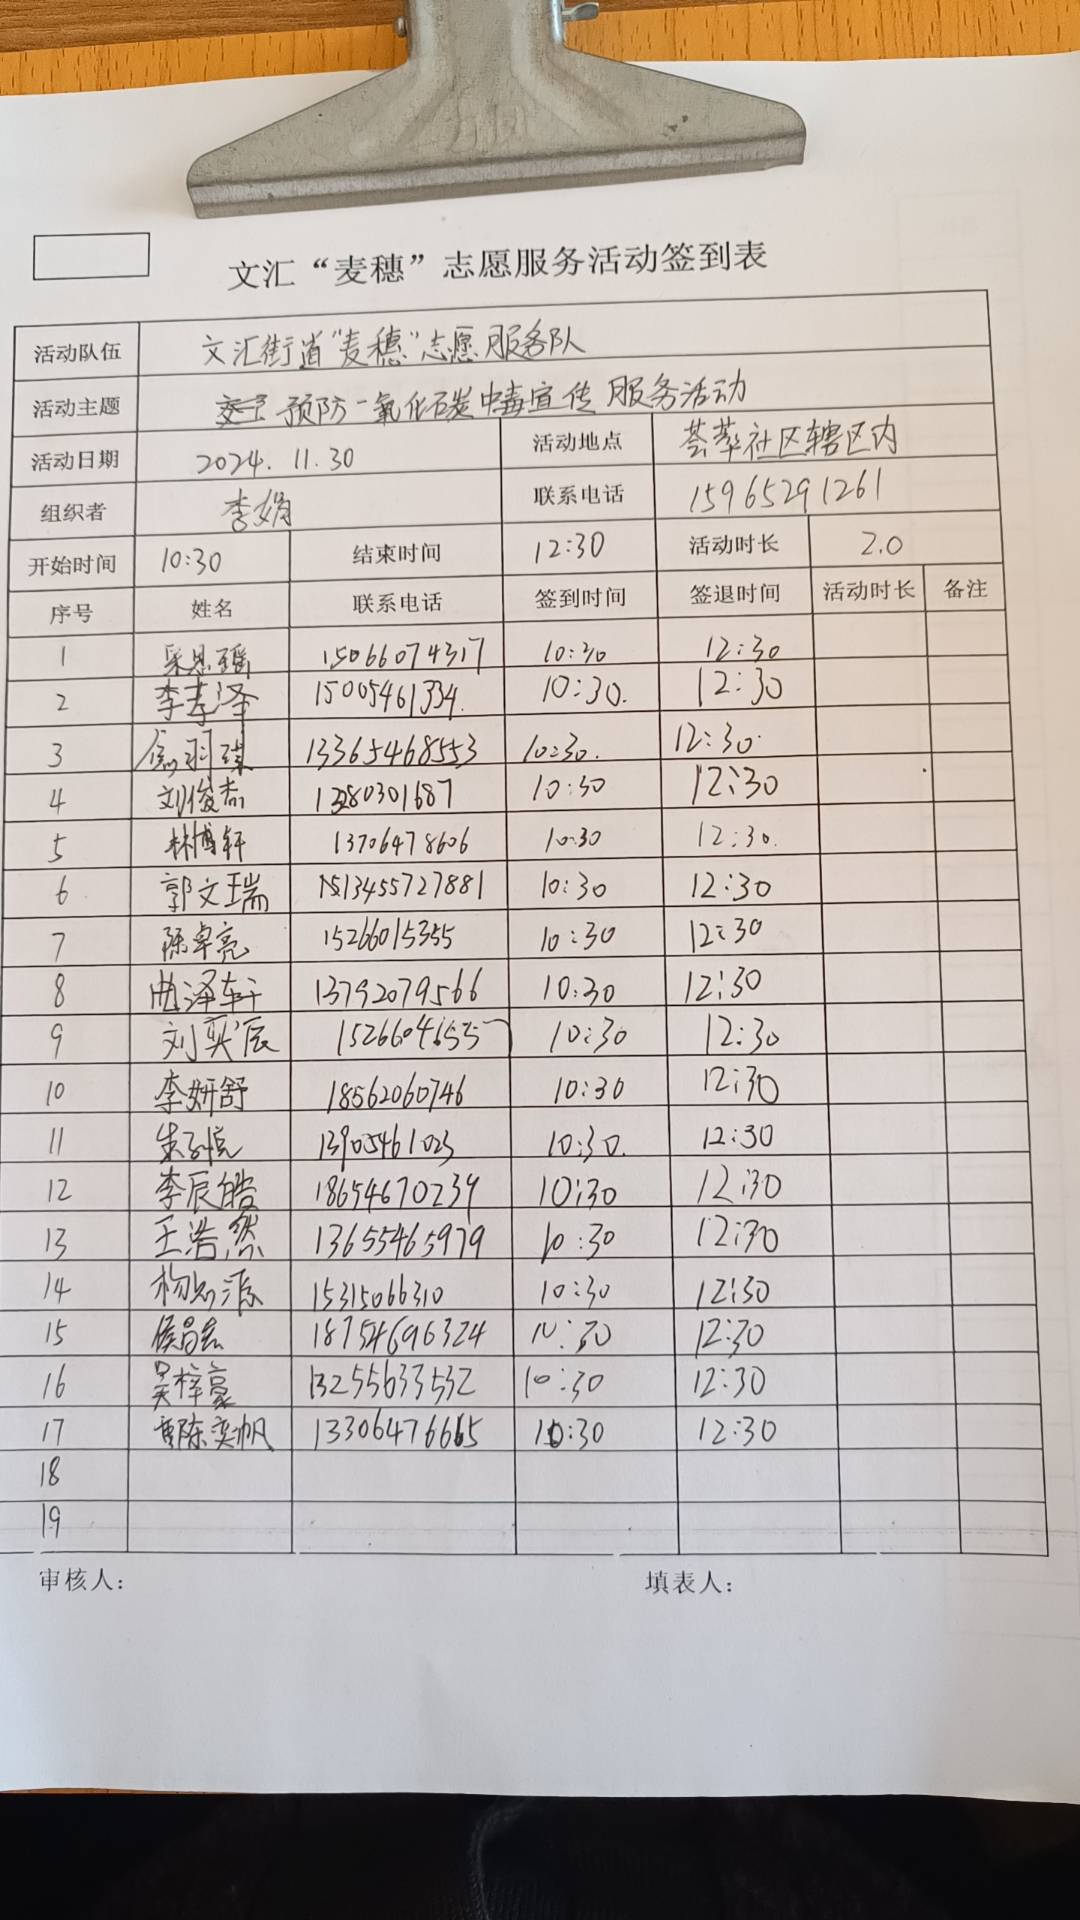 文汇“麦穗”志愿服务活动签到表
活动队伍 文汇街道“麦穗”志愿服务队
活动主题 预防一氧化碳中毒宣传服务活动
活动日期 2024.11.30 活动地点 荟萃社区辖区内
组织者 李娟 联系电话 15965291261
开始时间 10:30 结束时间 12:30 活动时长 2.0
序号 姓名 联系电话 签到时间 签退时间 活动时长 备注
1 15066074317 10:30 12:30
2 李孝泽 15005461334. 10:30. 12:30
3 13365468553 10:30. 12:30.
4 刘俊杰 10:30 12:30
5 林博轩 13706478606 10:30 12:30.
6 郭文瑞 10:30 12:30
7 陈卓亮 15266015355 10:30 12:30
8 曲泽轩 13792079566 10:30 12:30
9 刘奕辰 10:30 12:30
10 李妍舒 18562060746 10:30 12:30
11 朱子悦 13905461023 10:30. 12:30
12 李辰皓 18654670239 10:30 12:30
13 王浩然 13655465979 10:30 12:30
14 15315066310 10:30 12:30
15 18754696324 10:30 12:30
16 吴梓豪 13255633532 10:30 12:30
17 陈奕帆 13306476665 10:30 12:30
18
19
审核人： 填表人：